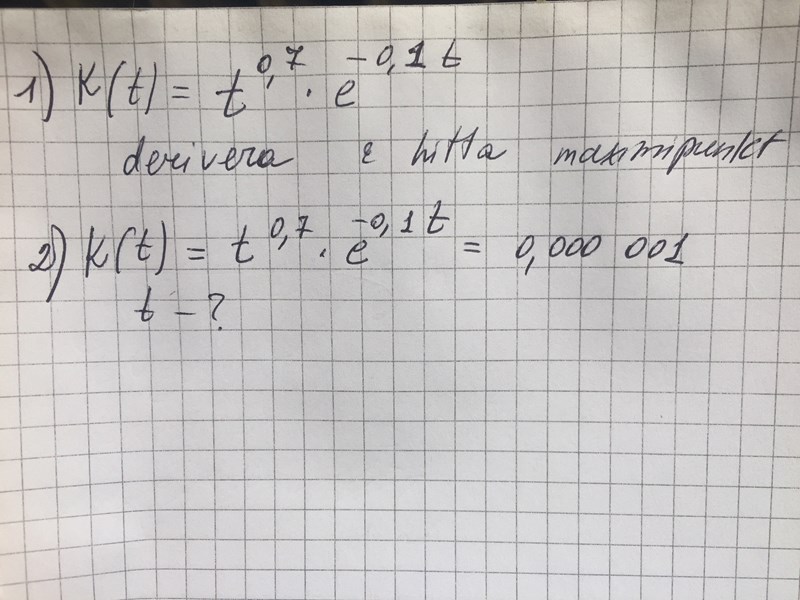 1) K(t) = t^0,7 · e^-0,1t
derivera & hitta maximipunkt
2) K(t) = t^0,7 · e^-0,1t = 0,000 001
t - ?